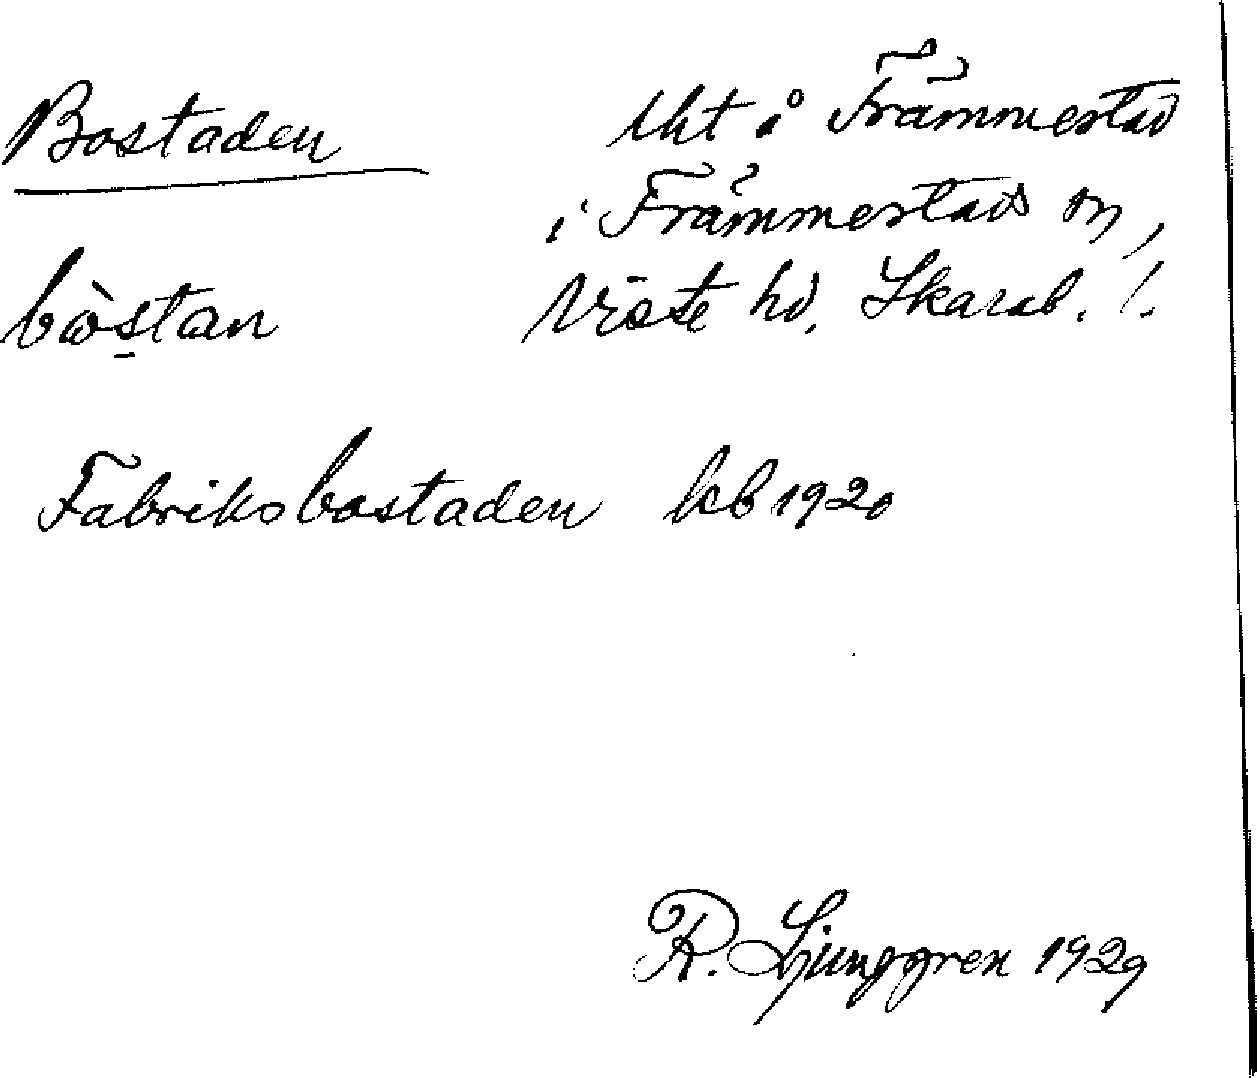 Bostaden
Uht å Främmestad
i Främmestads sn,
Viste hd, Skarab. l.
bòstan
Fabriksbostaden kb 1920
R. Ljunggren 1929